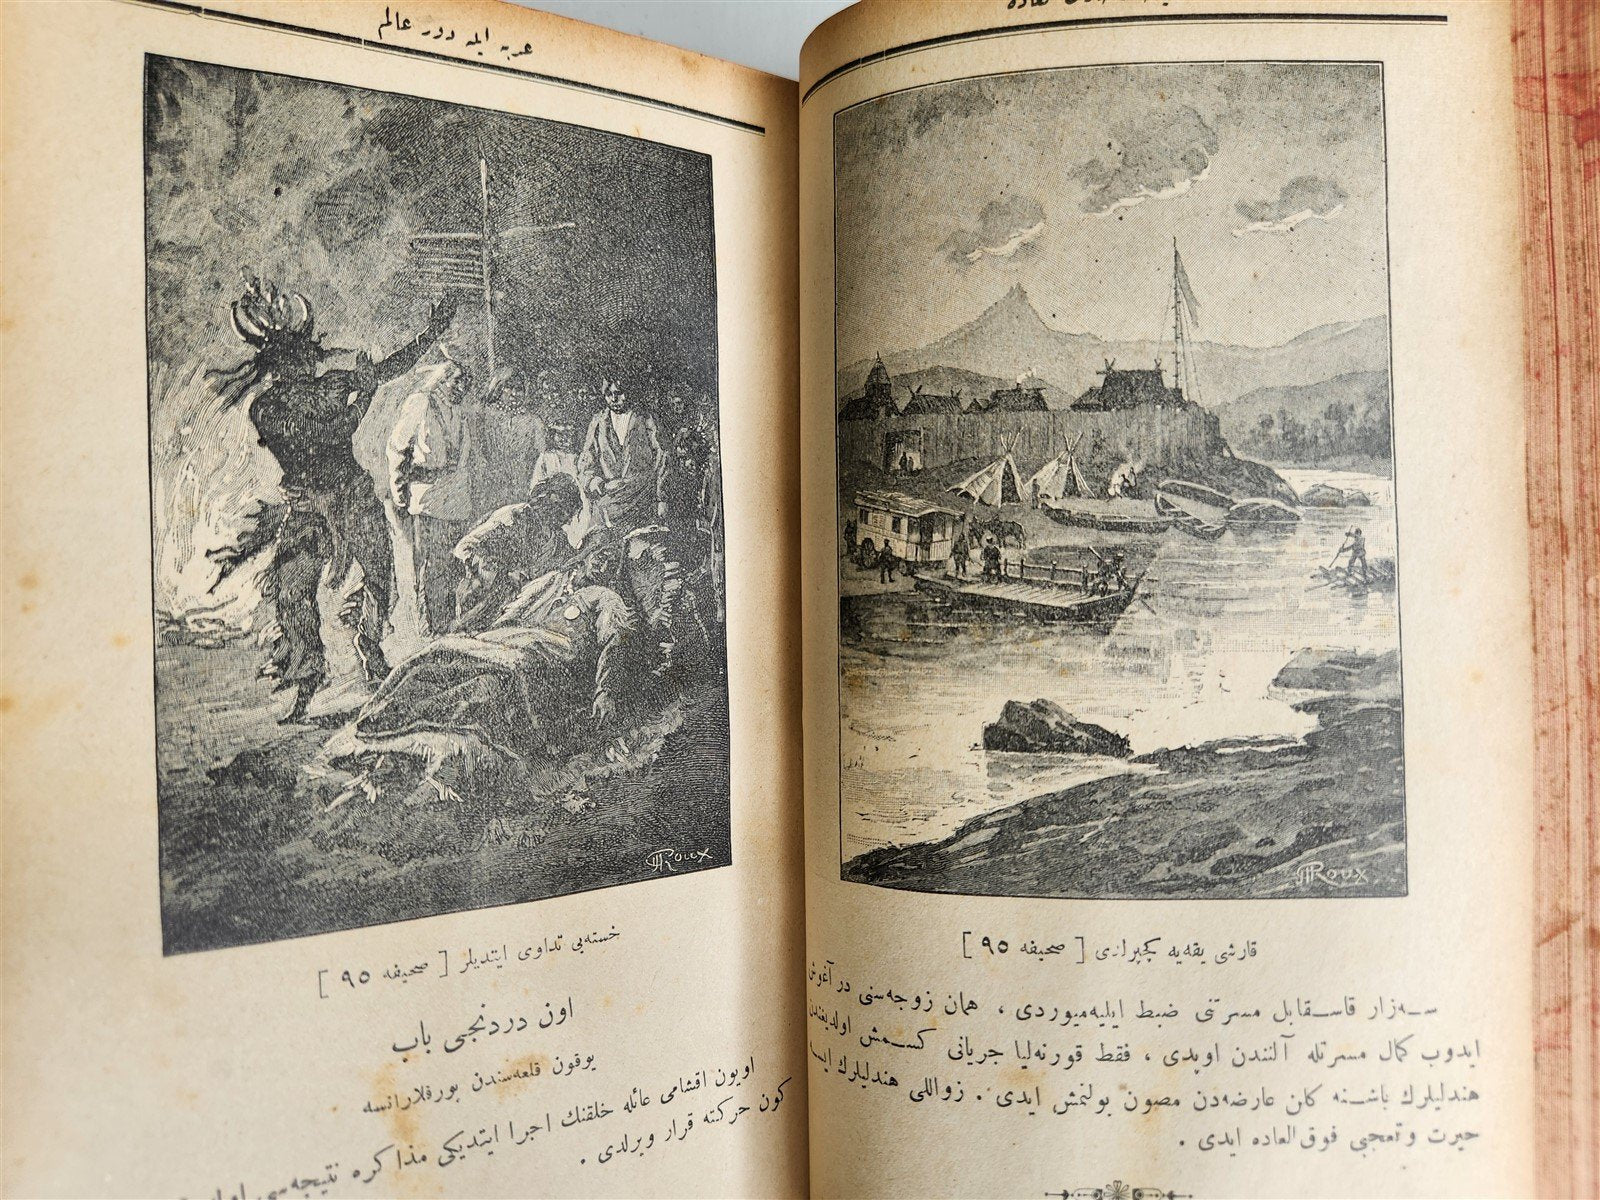 عربه ایله دور عالم
Roux
خسته‌یی تداوی ایتدیلر [ صحیفه ۹۵ ]
اون دردنجی باب
یوقون قلعه‌سندن پورقلارانسه
اویون اقشامی عائله خلقنك اجرا ایتدیکی مذاکره نتیجه‌سی
کون حرکته قرار ویرلدی .
Roux
قارشی یقه‌یه کچیرلدی [ صحیفه ۹۵ ]
سه‌زار قاسقابل مسرتنی ضبط ایلیه‌میوردی ، همان زوجه‌سنی در آغوش
ایدوب کمال مسرتله آلنندن اوپدی ، فقط قورنه‌لیا جریانی کسمش اولدیغندن
هندلیلرك باشنه کلن عارضه‌دن مصون بولنمش ایدی . زواللی هندلیلرك ایسه
حیرت وتعجبی فوق‌العاده ایدی .